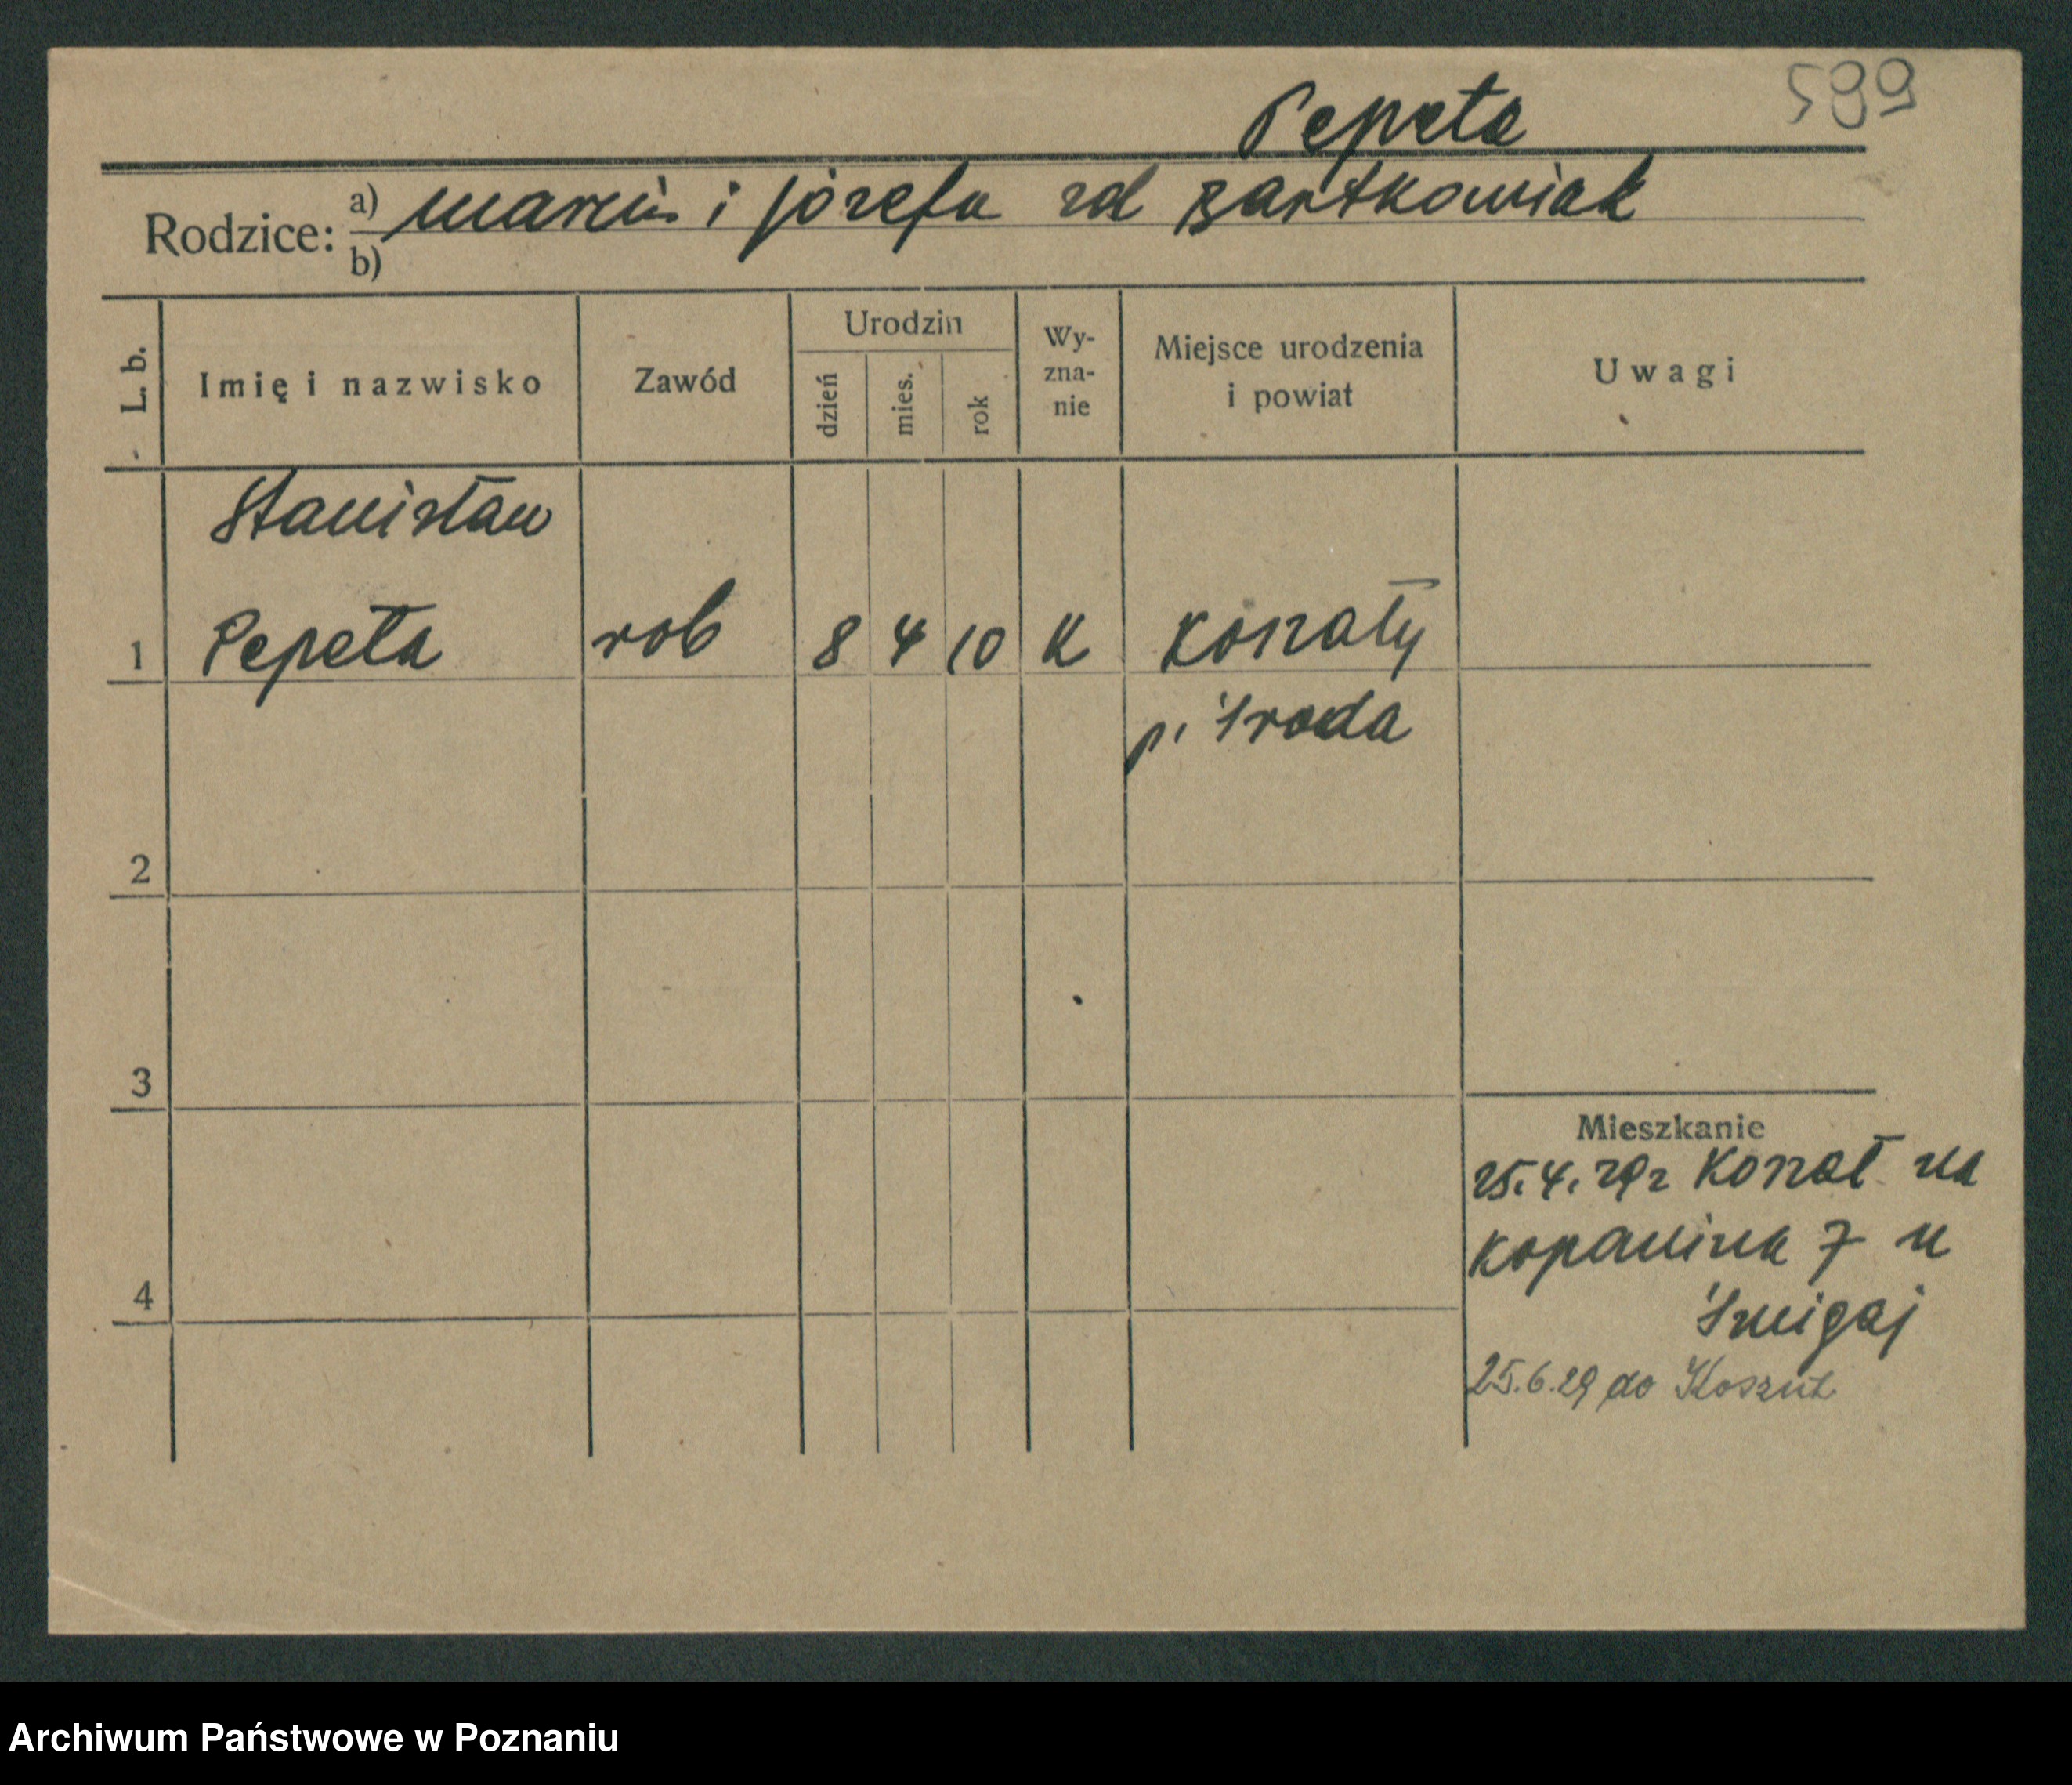 599
Pepeta
Rodzice: a) Marcin i Józefa zd Bartkowiak
b)
L. b.
Imię i nazwisko
Zawód
Urodzin
dzień
mies.
rok
Wy-
zna-
nie
Miejsce urodzenia
i powiat
Uwagi
Stanisław
1 Pepeta rob 8 4 10 K Koszuty
p. Środa
2
3
4
Mieszkanie
25.4.29 z Koszut na
Kopanina 7 u
Śmigaj
25.6.29 do Koszut
Archiwum Państwowe w Poznaniu